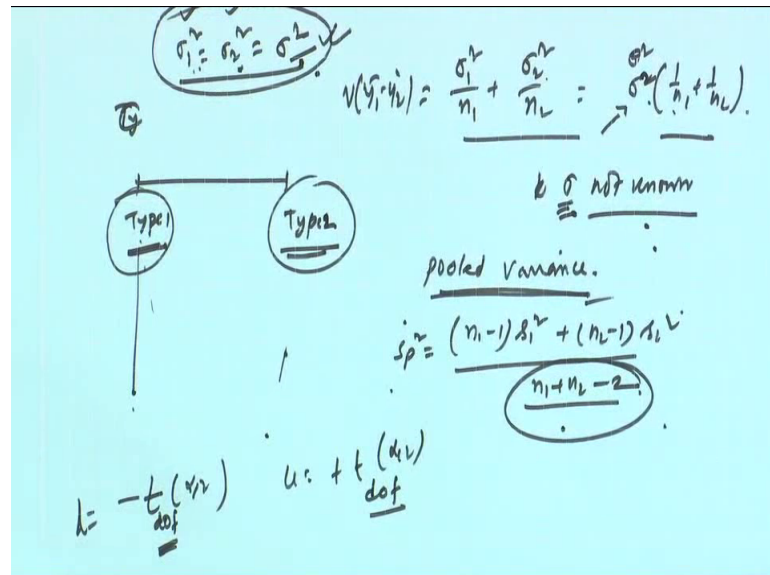 σ₁² = σ₂² = σ²
V(ȳ₁-ȳ₂) = σ₁²/n₁ + σ₂²/n₂ = σ²(1/n₁ + 1/n₂).
Ty
& σ not known
Type1 Type2
pooled variance.
sp² = (n₁-1)s₁² + (n₂-1)s₂²
n₁+n₂-2
L = -t(α/2) u = + t(α/2)
dof dof